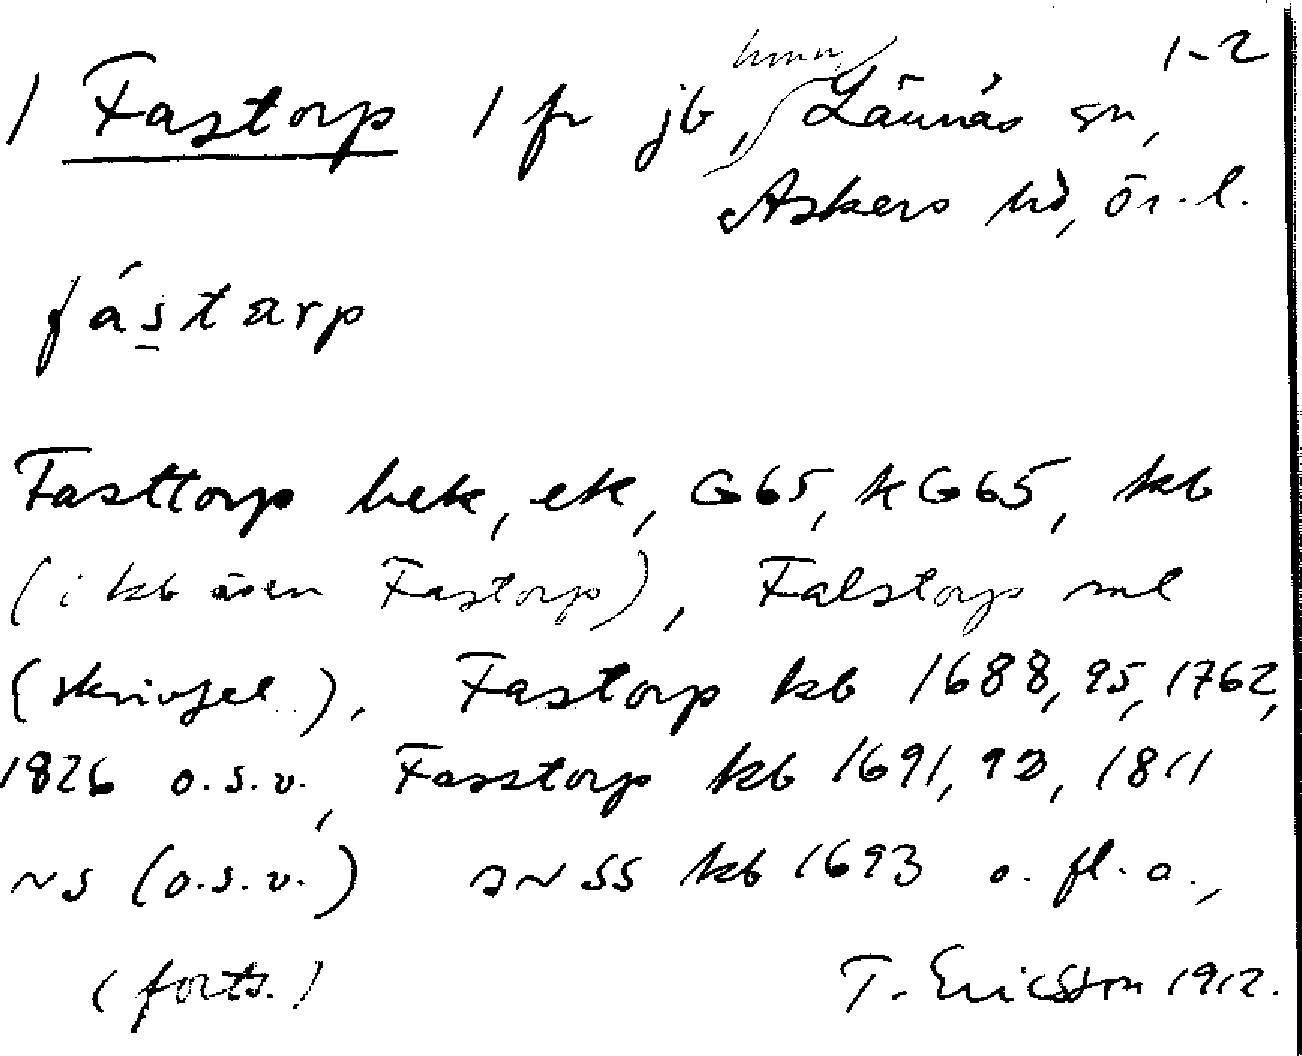 1-2
1 Fastorp 1 fr jb, hmn, Lännäs sn,
Askers hd, Ör. l.
fástarp
Fasttorp hek, ek, G65, kG65, kb
(i kb även Fastorp), Falstorp ml
(skrivfel.), Fastorp kb 1688, 95, 1762,
1826 o.s.v., Fasstorp kb 1691, 92, 1811
~s (o.s.v.) ~ss kb 1693 o. fl. a.,
(forts.) T. Ericsson 1912.